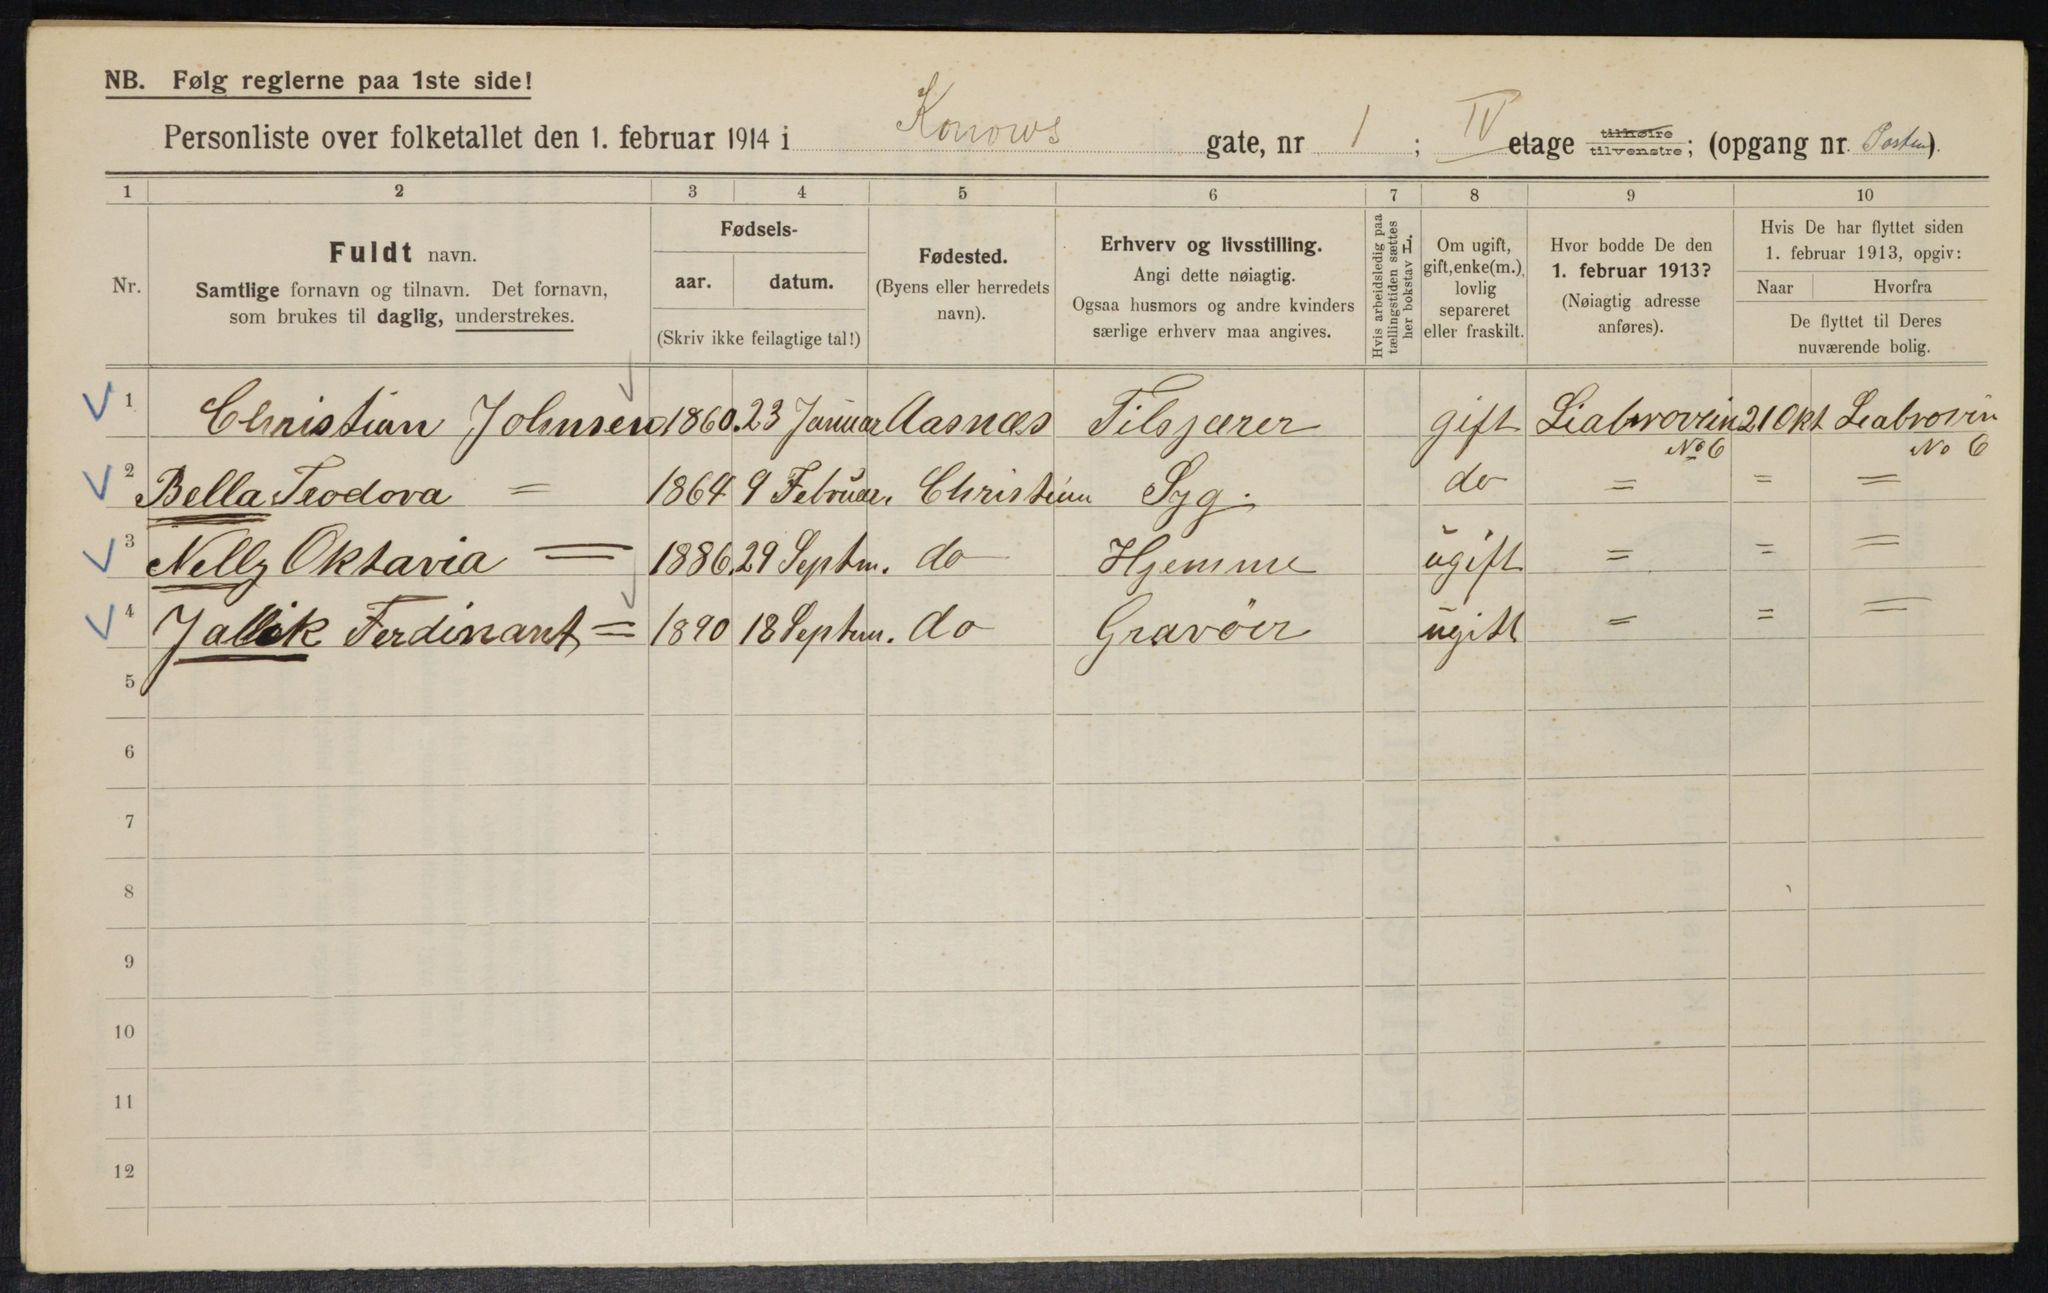 NB. Følg reglerne paa 1ste side!
Personliste over folketallet den 1. februar 1914 i Konows gate, nr 1 ; IV etage tilhøire tilvenstre; (opgang nr. ).
1 2 3 4 5 6 7 8 9 10
Nr.
Fuldt navn.
Samtlige fornavn og tilnavn. Det fornavn,
som brukes til daglig, understrekes.
Fødsels-
aar. datum.
(Skriv ikke feilagtige tal!)
Fødested.
(Byens eller herredets
navn).
Erhverv og livsstilling.
Angi dette nøiagtig.
Ogsaa husmors og andre kvinders
særlige erhverv maa angives.
Hvis arbeidsledig paa
tællingstiden sættes
her bokstav L.
Om ugift,
gift, enke(m.),
lovlig
separeret
eller fraskilt.
Hvor bodde De den
1. februar 1913?
(Nøiagtig adresse
anføres).
Hvis De har flyttet siden
1. februar 1913, opgiv:
Naar Hvorfra
De flyttet til Deres
nuværende bolig.
1 Christian Johnsen 1860. 23 Januar Aasnæs gift 21 Okt
No 6 No 6
2 Bella Teodora = 1864 9 Februar. Christian Syg. do = = =
3 Nelly Oktavia = 1886. 29 Septm. do Hjemme ugift = = =
4 Ferdinant = 1890 18 Septm. do Gravöer ugift = = =
5
6
7
8
9
10
11
12